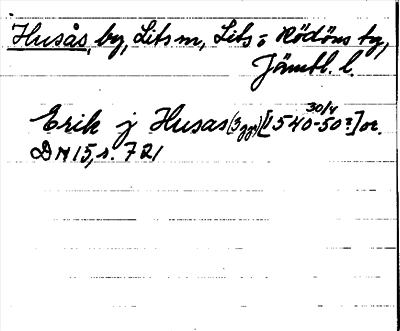 Husås, by, Lits sn, Lits o Rödöns tg,
Jämtl. l.
Erik j Husas (3 ggr) [1540-50?] or.
30/4
DN 15, s. 721